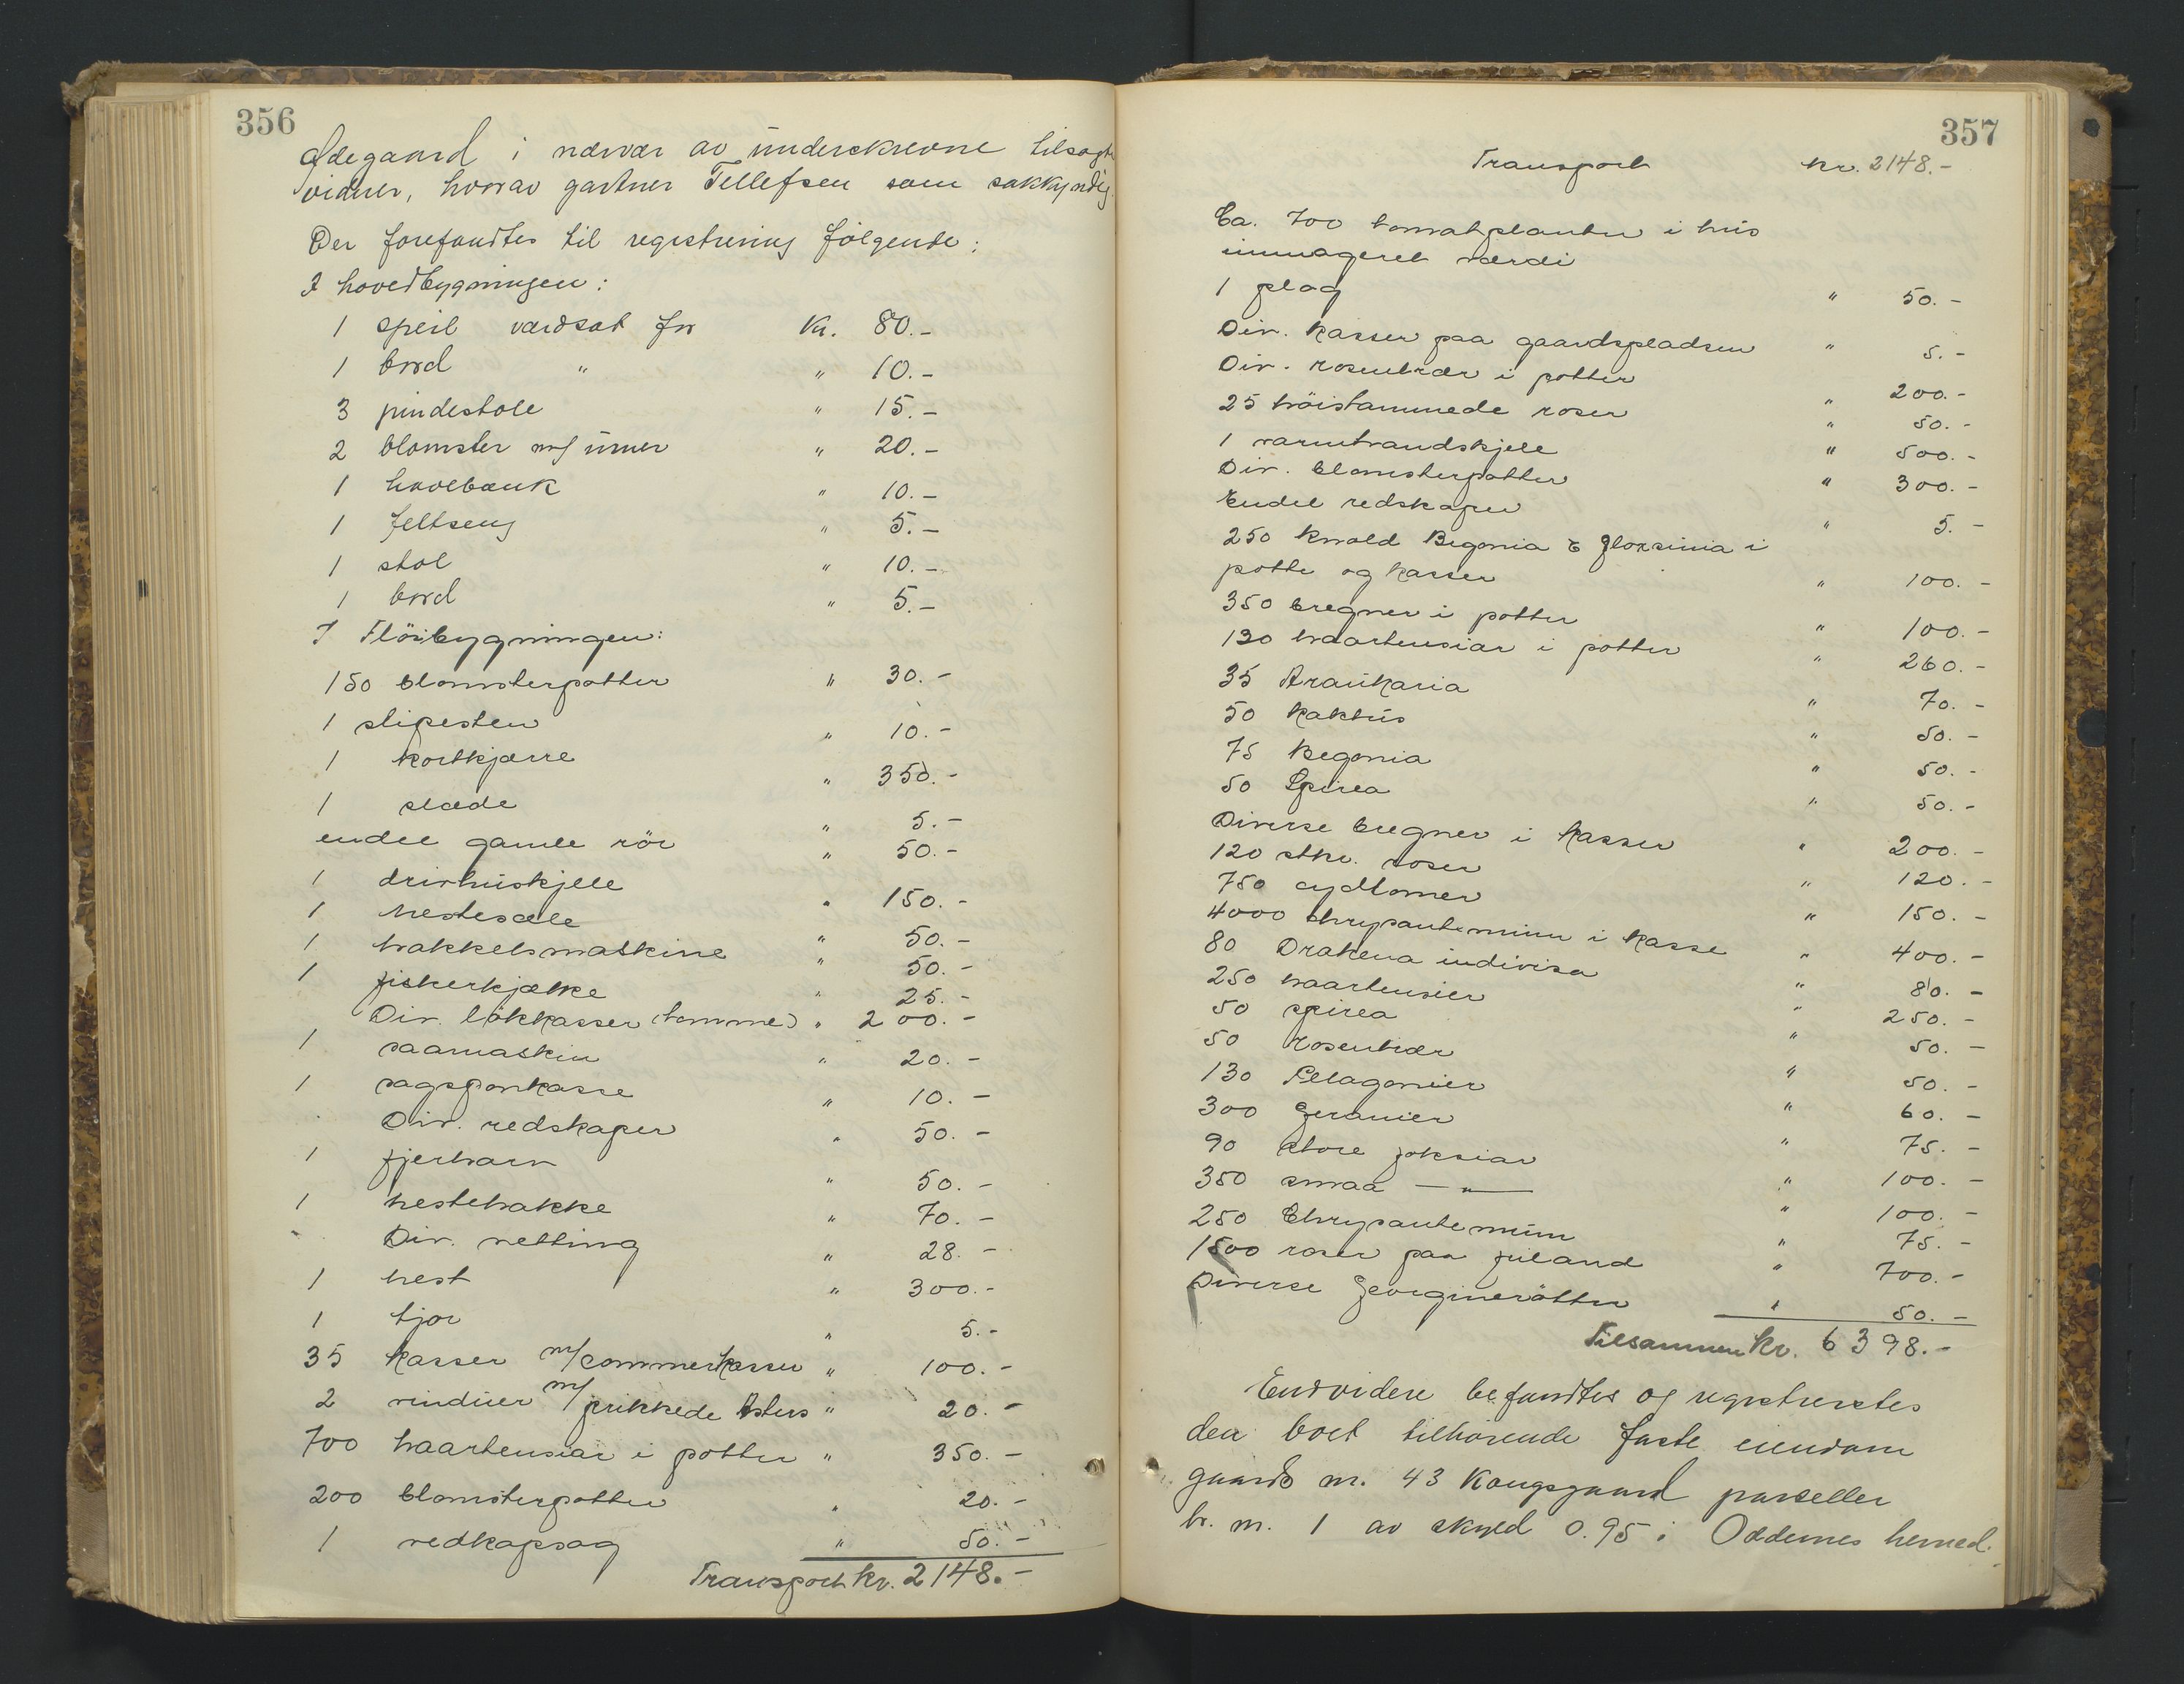 356
Ødegaard i nærvær av underskrevne tilsagte
vidner, hvorav gartner Tellefsen som sakkyndig.
Der forefandtes til registrering følgende:
I hovedbygningen:
1 speil værdsat for Kr. 80.-
1 bord " " 10.-
3 pindestole " 15.-
2 blomster m/ urner " 20.-
1 høvebænk " 10.-
1 feltseng " 5.-
1 stol " 10.-
1 bord " 5.-
I Fløibygningen:
150 blomsterpotter " 30.-
1 slipesten " 10.-
1 kortkjærre " 350.-
1 slæde " 5.-
endel gamle rör " 50.-
1 drivhuskjele " 150.-
1 hestesæle " 50.-
1 hakkelsmaskine " 50.-
1 fiskerkjælke " 25.-
Div. lökkasser (tomme) " 200.-
1 saamaskin " 20.-
1 sagsponkasse " 10.-
Div. redskaper " 50.-
1 fjerharv " 50.-
1 hestehakke " 70.-
Div. netting " 28.-
1 hest " 300.-
1 tjor " 5.-
35 kasser m/sommerkasser " 100.-
2 vinduer m/prikkede Asters " 20.-
700 haartensiar i potter " 350.-
200 blomsterpotter " 20.-
1 vedkapsag " 50.-
Transport kr. 2148.-
357
Transport kr. 2148.-
Ca. 700 tomatplanter i hus
værdi
1 plog " 50.-
Div. kasser paa gaardspladsen " 5.-
Div. rosentrær i potter " 200.-
25 höistammede roser " 50.-
1 varmtvandskjele " 500.-
Div. blomsterpotter " 300.-
Endel redskaper " 5.-
250 knold Begonia & gloxsinia i
potte og kasser " 100.-
350 bregner i potter " 100.-
130 haartensiar i potter " 260.-
35 Araukaria " 70.-
50 Kaktus " 50.-
75 Begonia " 50.-
50 Spirea " 50.-
Diverse bregner i kasser " 200.-
120 stkr. roser " 120.-
750 cycklomer " 150.-
4000 chrysantemum i kasse " 400.-
80 Drakena indivisa " 80.-
250 haartensier " 250.-
50 spirea " 50.-
50 rosentrær " 50.-
130 Pelagonier " 60.-
300 geranier " 75.-
90 store foksiar " 100.-
350 smaa — " — " 100.-
250 Chrysantemum " 75.-
1500 roser paa friland " 700.-
Diverse georginerötter " 50.-
Tilsammen kr. 6398.-
Endvidere befandtes og registrertes
den boet tilhörende faste eiendom
gaards nr. 43 Kongsgaard parseller
br. nr. 1 av skyld 0.95 i Oddernes herred.